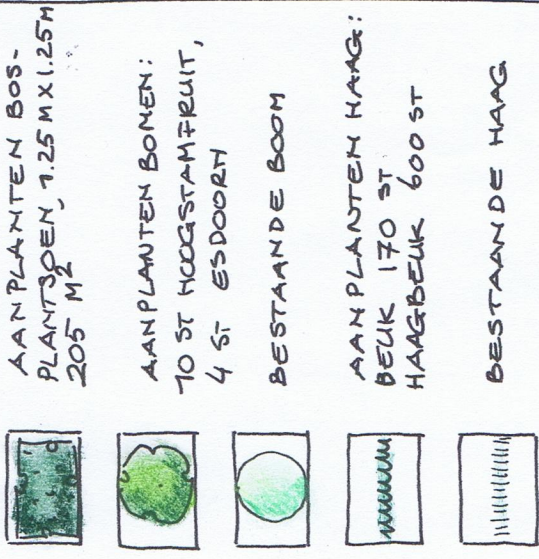 AANPLANTEN BOS-
PLANTSOEN, 1.25 M X 1.25M
205 M2
AANPLANTEN BOMEN:
10 ST HOOGSTAMFRUIT,
4 ST ESDOORN
BESTAANDE BOOM
AANPLANTEN HAAG:
BEUK 170 ST
HAAGBEUK 600 ST
BESTAANDE HAAG